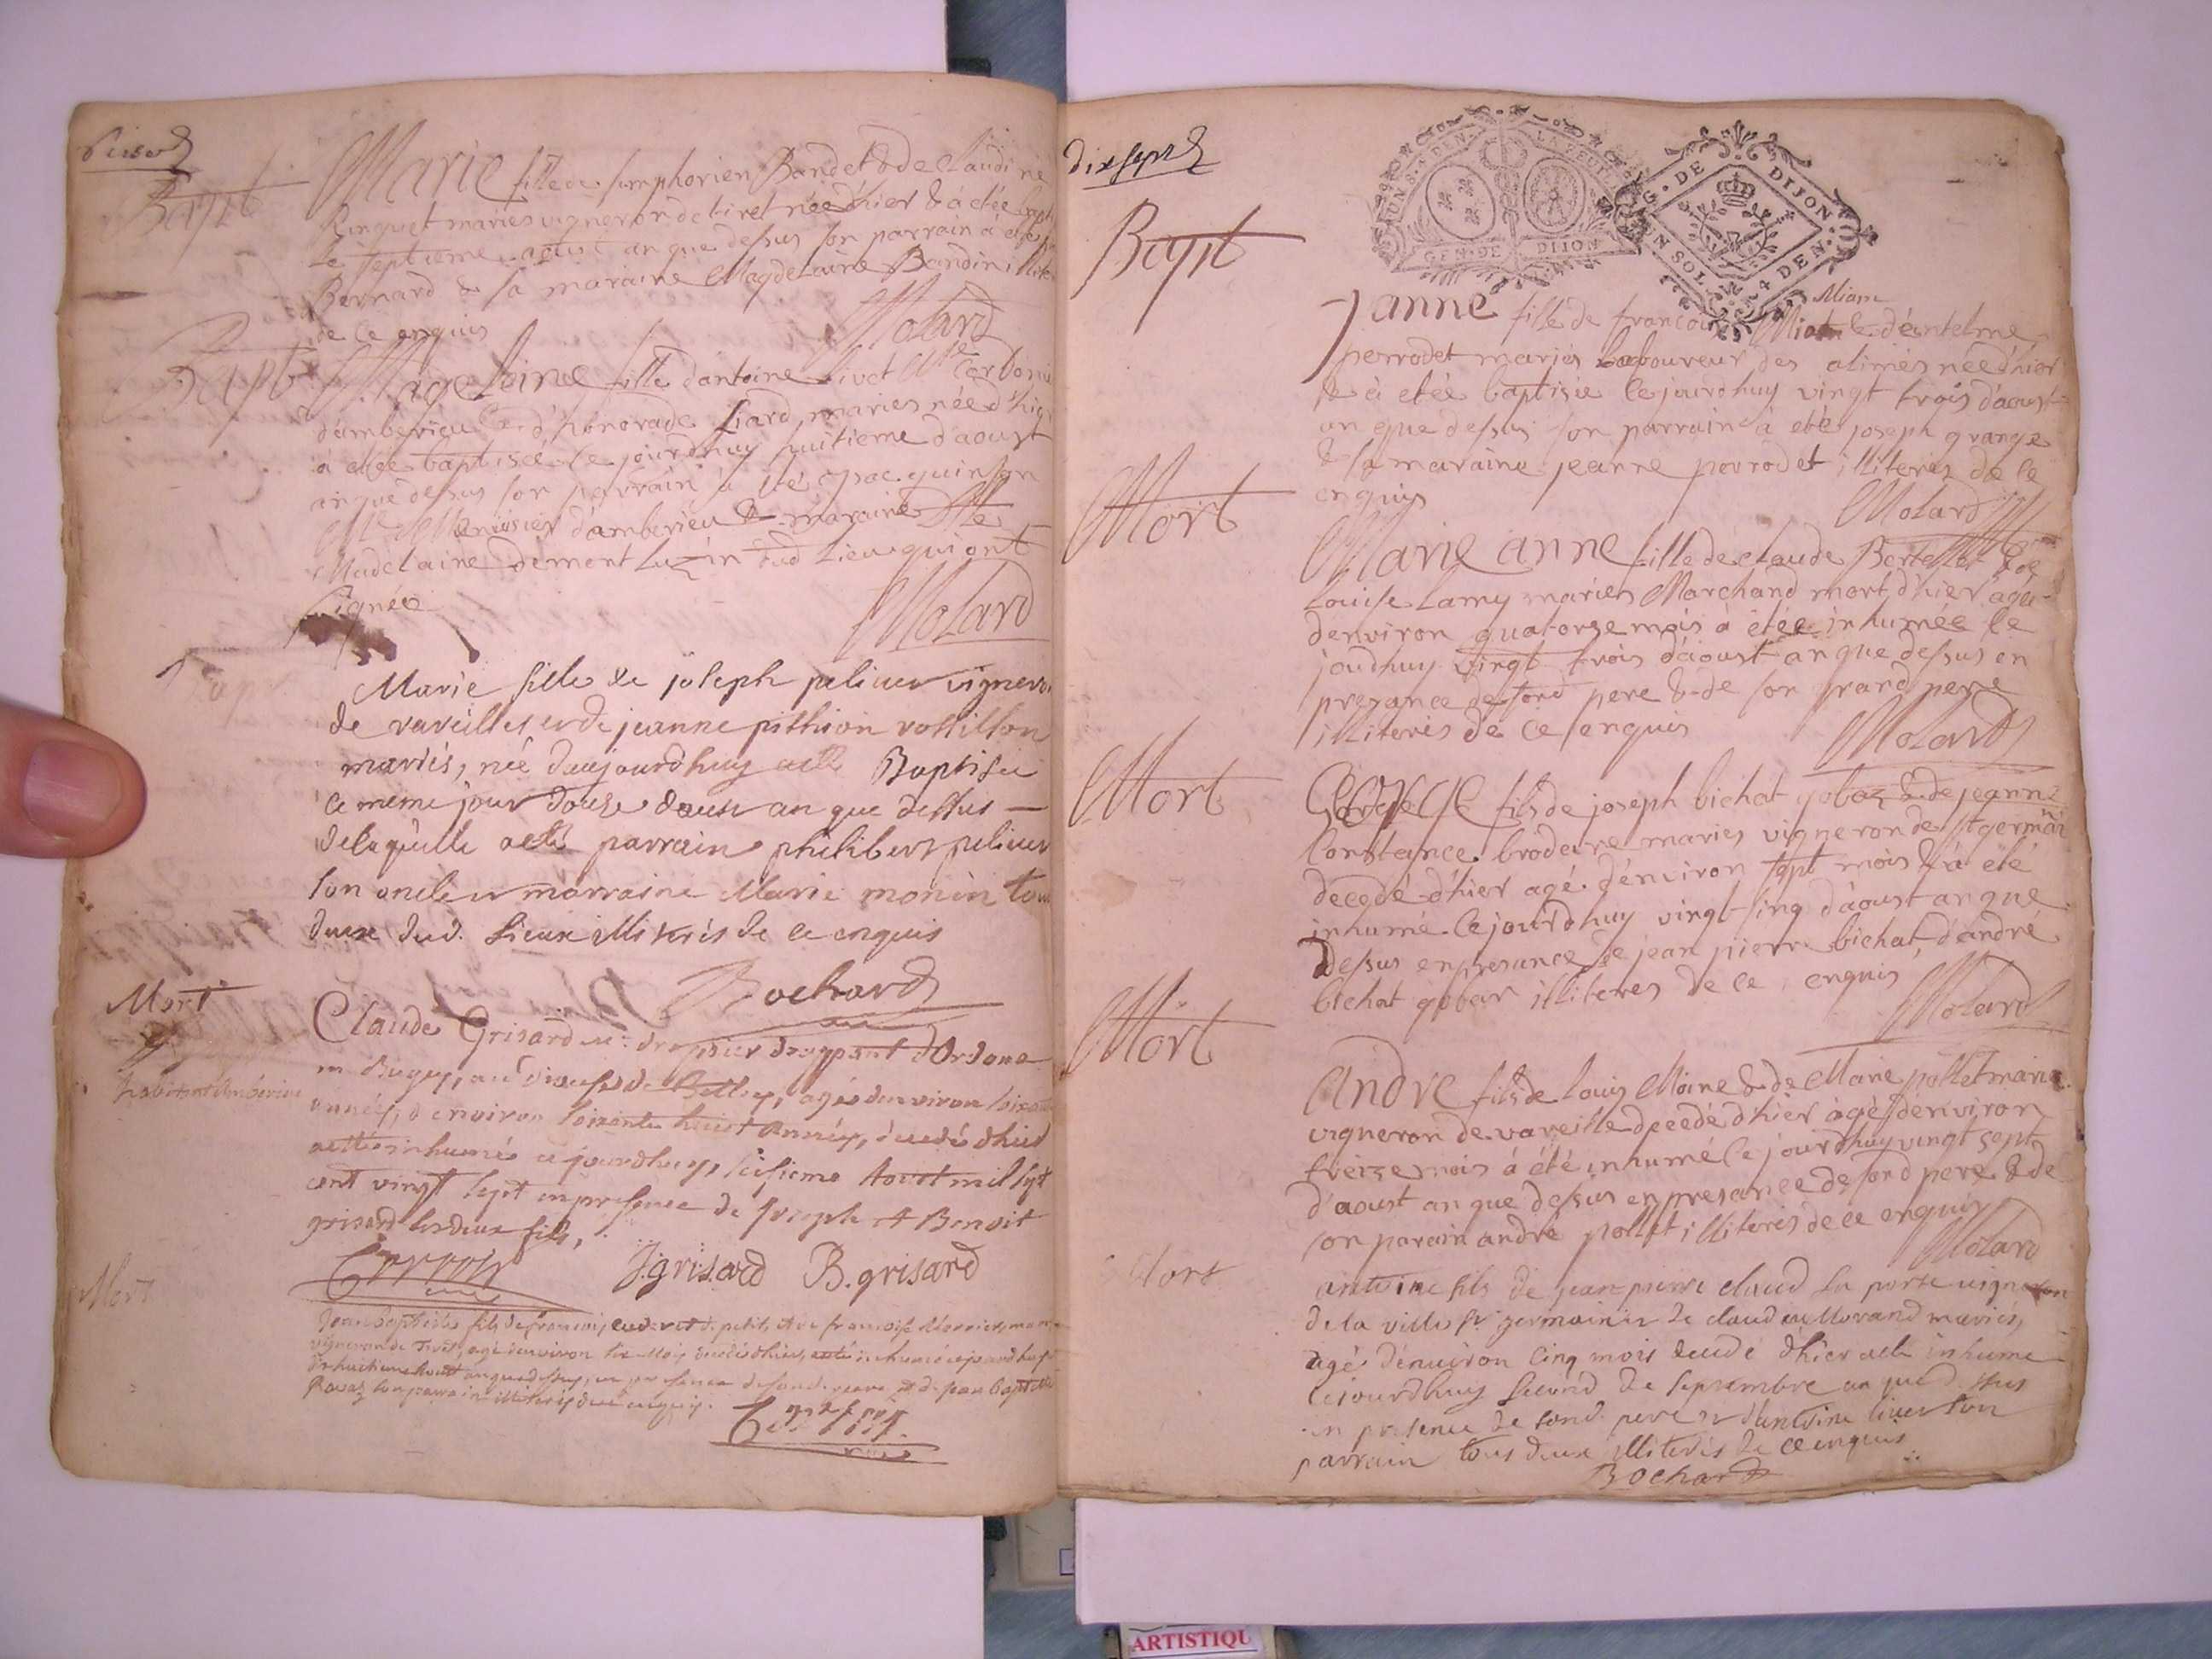 Bapt
Marie fille de simphorien Bandet & de Claudine
Ringuet mariés vigneron de tiret née d'hier & à etée
le septieme aoust an que dessus son parrain à eté
Bernard & sa maraine Magdelaine Bandin
de ce enquis Molard
Bapt
Magdeleine fille dantoine livet
d'amberieu & d'honorade liard mariés née d'hier
à etée baptisée le jourdhuy huitieme d'aoust
an que dessus son parrain à été isac quinson
Me Menuisier d'amberieu & maraine
Madelaine demontluzin dud lieu qui ont
signée Molard
Bapt
Marie fille de joseph pelieur vigneron
de vareilles et de jeanne pithion rossillon
mariés, née daujourdhuy a esté Baptisée
ce meme jour douze daoust an que dessus
de laquelle a esté parrain philibert pelieur
son oncle et marraine Marie monin tous
deux dud. lieux illiterés de ce enquis
Bochard
Mort
habitant Amberieu
Claude Grisard drapant d'Ordona
en Bugey, au diocese de Belley, agé denviron soixante
années, d'environ soixante huict années, decedé d'hier
a esté inhumé ce jourdhuy, seisieme Aoust mil sept
cent vingt sept en presence de Joseph et Benoit
grisard ses deux fils,
J. grisard B. grisard
Mort
Jean baptiste fils de francois de petit, et de francoise mariés
vigneron de Tiret, agé denviron six mois decedé dhier, a esté inhumé ce jourdhuy
dixhuictieme Aoust an que dessus, en presence de sond. pere et de jean baptiste
Ravaz son parrain illiterés de ce enquis.
dix sept
Bapt
GEN. DE DIJON
G. DE DIJON
UN SOL 4 DEN.
Miam
Janne fille de francois & d'éantelme
perrodet mariés laboureur des alimés née d'hier
& à etée baptisée le jourdhuy vingt trois d'aoust
an que dessus son parrain à eté joseph grange
& la maraine jeanne perrodet illiterés de ce
enquis Molard
Mort
Marie anne fille de claude Bertellot & de
Louise Lamy mariés Marchand mort d'hier agée
d'environ quatorze mois à etée inhumée le
jourdhuy vingt trois d'aoust an que dessus en
presance de sond pere & de son grand pere
illiterés de ce enquis Molard
Mort
George fils de joseph bichat gobaz & de jeanne
Constance brodeure mariés vigneron de st germain
decedé d'hier agé d'environ sept mois & à été
inhumé le jourdhuy vingt sinq d'aoust an que
dessus en presance de jean pierre bichat, d'andré
bichat gobaz illiteres de ce enquis Molard
Mort
André fils de louis Moine & de Marie pollet mariés
vigneron de vareille decedé d'hier àgé d'environ
treize mois à été inhumé le jourdhuy vingt sept
d'aoust an que dessus en presance de sond pere & de
son parain andré pollet illiterés de ce enquis
Molard
Mort
antoine fils de jean pierre claud la porte vigneron
de la ville st germain et de claudine Morand mariés,
agé d'environ cinq mois decedé d'hier a esté inhumé
cejourdhuy second de septembre an que dessus
en presence de sond. pere et d'antoine livet son
parrain tous deux illiterés de ce enquis
Bochard
ARTISTIQU